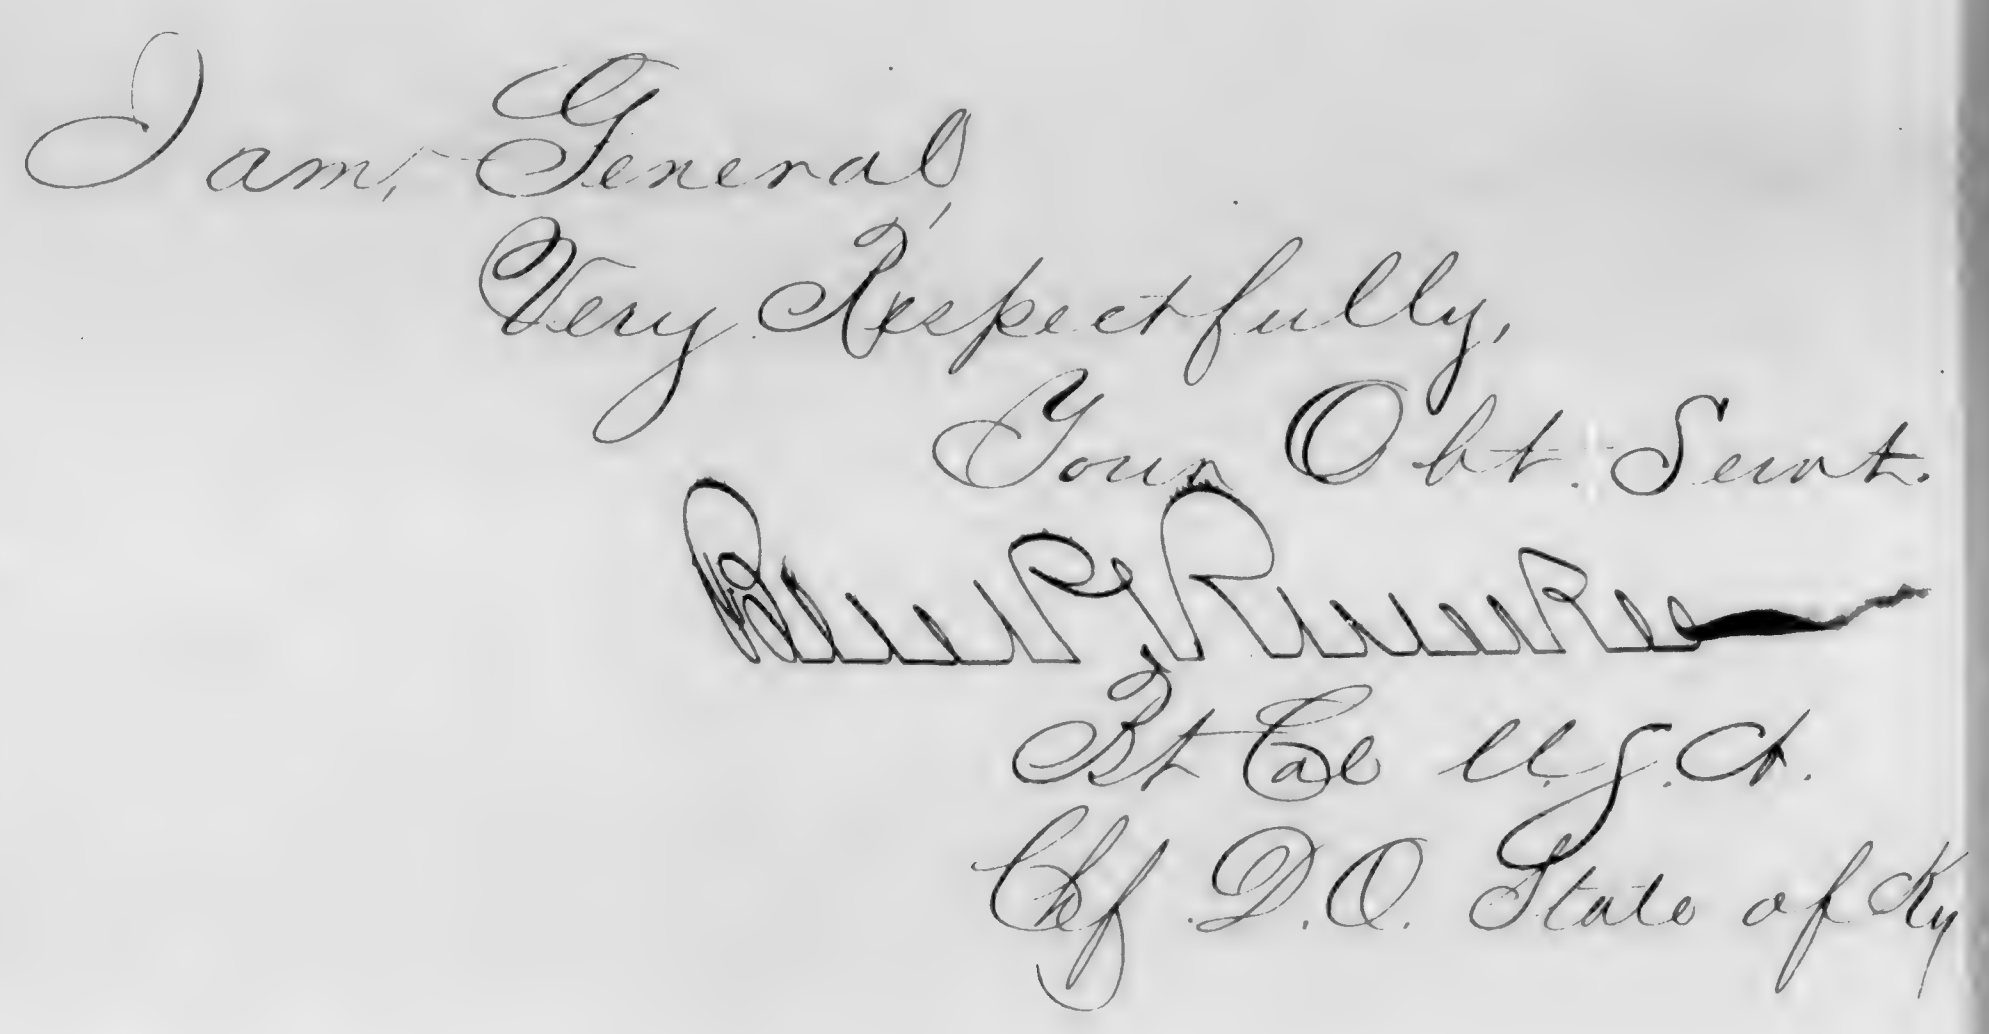 I am, General,
Very Respectfully,
Your Obt. Servt.
Ben P. Runkle
Bt Col U.S.A.
Chf D.O. State of Ky